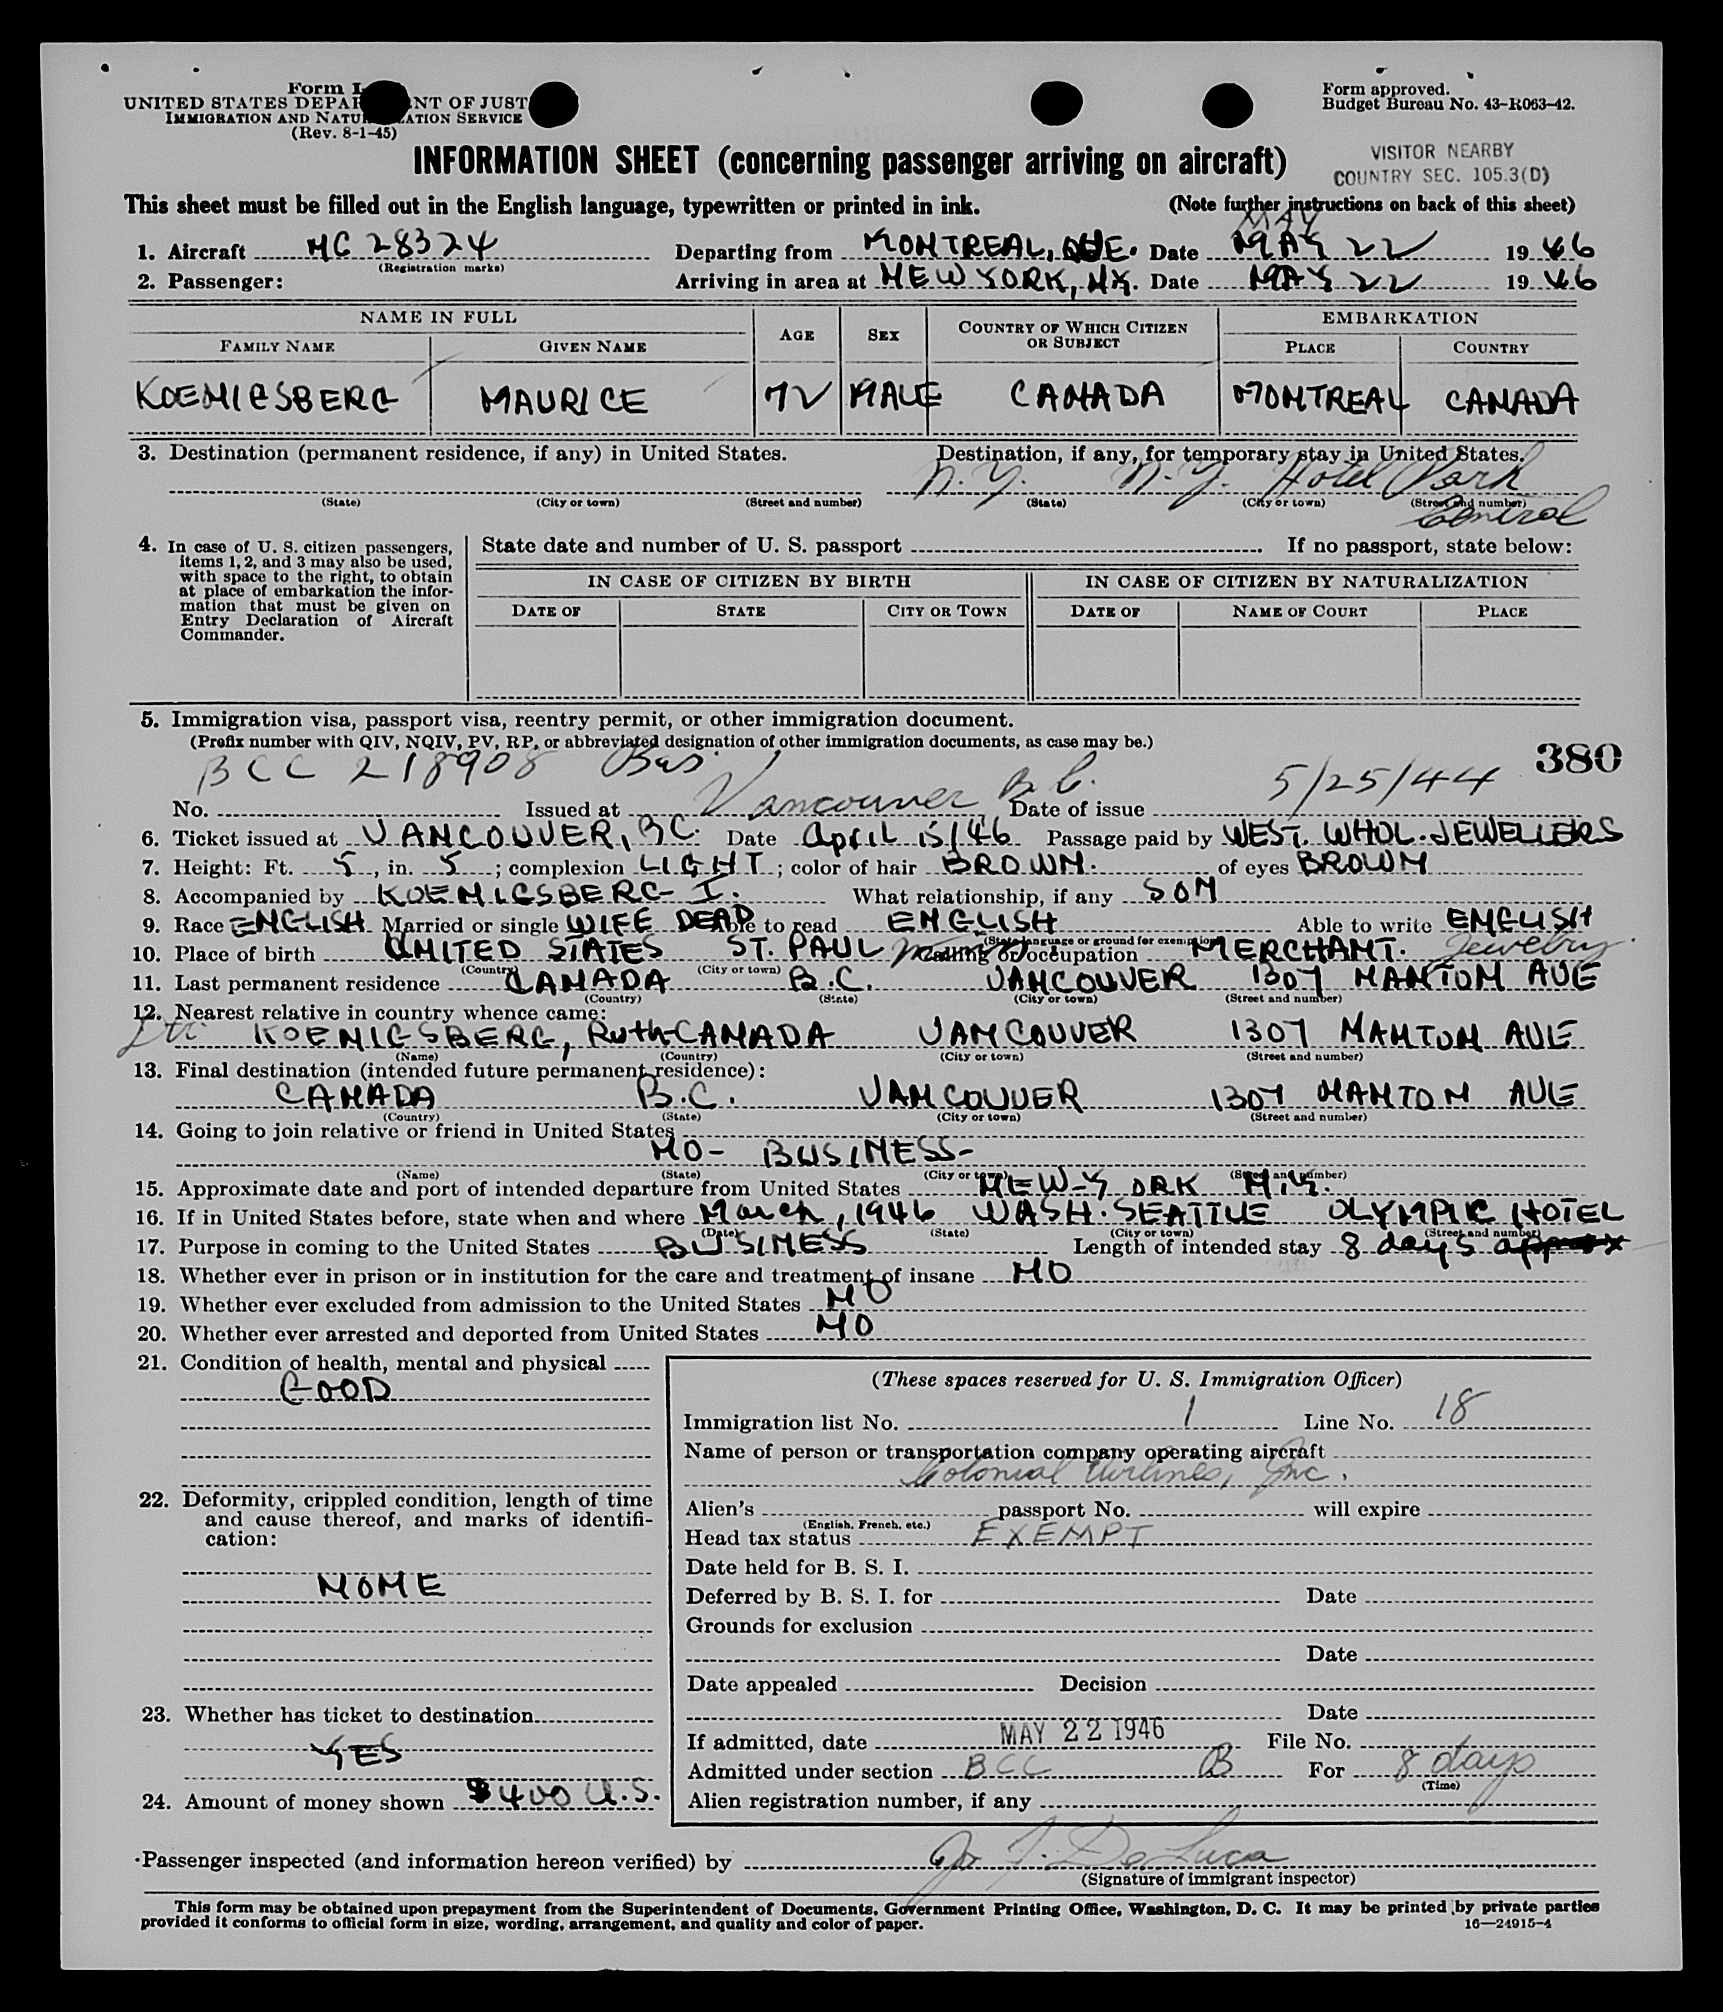 Form I
UNITED STATES DEPAR NT OF JUST
IMMIGRATION AND NATU ATION SERVICE
(Rev. 8-1-45)
Form approved.
Budget Bureau No. 43-R063-42.
INFORMATION SHEET (concerning passenger arriving on aircraft)
VISITOR NEARBY
COUNTRY SEC. 105.3(D)
This sheet must be filled out in the English language, typewritten or printed in ink.
(Note further instructions on back of this sheet)
MAY
1. Aircraft NC 28324 Departing from MONTREAL, QUE. Date MAY 22 1946
(Registration marks)
2. Passenger: Arriving in area at NEW YORK, NY. Date MAY 22 1946
NAME IN FULL AGE SEX COUNTRY OF WHICH CITIZEN OR SUBJECT EMBARKATION
FAMILY NAME GIVEN NAME PLACE COUNTRY
KOENIGSBERG MAURICE 72 MALE CANADA MONTREAL CANADA
3. Destination (permanent residence, if any) in United States. Destination, if any, for temporary stay in United States.
N.Y. N.Y. Hotel Park
(State) (City or town) (Street and number) (State) (City or town) (Street and number)
Central
4. In case of U. S. citizen passengers, items 1, 2, and 3 may also be used, with space to the right, to obtain at place of embarkation the information that must be given on Entry Declaration of Aircraft Commander.
State date and number of U. S. passport If no passport, state below:
IN CASE OF CITIZEN BY BIRTH IN CASE OF CITIZEN BY NATURALIZATION
DATE OF STATE CITY OR TOWN DATE OF NAME OF COURT PLACE
5. Immigration visa, passport visa, reentry permit, or other immigration document.
(Prefix number with QIV, NQIV, PV, RP, or abbreviated designation of other immigration documents, as case may be.)
380
BCC 218908 Bus.
No. Issued at Vancouver B.C. Date of issue 5/25/44
6. Ticket issued at VANCOUVER, B.C. Date April 15/46 Passage paid by WEST. WHOL. JEWELLERS
7. Height: Ft. 5, in. 5; complexion LIGHT; color of hair BROWN. of eyes BROWN
8. Accompanied by KOENIGSBERG I. What relationship, if any SON
9. Race ENGLISH Married or single WIFE DEAD Able to read ENGLISH Able to write ENGLISH
(State language or ground for exemption)
10. Place of birth UNITED STATES ST. PAUL Minn. Calling or occupation MERCHANT. Jewelry
(Country) (City or town)
11. Last permanent residence CANADA B.C. VANCOUVER 1307 NANTON AVE
(Country) (State) (City or town) (Street and number)
12. Nearest relative in country whence came:
KOENIGSBERG, Ruth CANADA VANCOUVER 1307 NANTON AVE
(Name) (Country) (City or town) (Street and number)
13. Final destination (intended future permanent residence):
CANADA B.C. VANCOUVER 1307 NANTON AVE
(Country) (State) (City or town) (Street and number)
14. Going to join relative or friend in United States
NO- BUSINESS-
(Name) (State) (City or town) (Street and number)
15. Approximate date and port of intended departure from United States NEW-YORK N.Y.
16. If in United States before, state when and where March, 1946 WASH. SEATTLE OLYMPIC HOTEL
(Date) (State) (City or town) (Street and number)
17. Purpose in coming to the United States BUSINESS Length of intended stay 8 days approx
18. Whether ever in prison or in institution for the care and treatment of insane NO
19. Whether ever excluded from admission to the United States NO
20. Whether ever arrested and deported from United States NO
21. Condition of health, mental and physical
GOOD
22. Deformity, crippled condition, length of time and cause thereof, and marks of identification:
NONE
23. Whether has ticket to destination
YES
24. Amount of money shown $400 U.S.
(These spaces reserved for U. S. Immigration Officer)
Immigration list No. 1 Line No. 18
Name of person or transportation company operating aircraft
Colonial Airlines, Inc.
Alien's passport No. will expire
(English, French, etc.)
Head tax status EXEMPT
Date held for B. S. I.
Deferred by B. S. I. for Date
Grounds for exclusion
Date
Date appealed Decision
Date
If admitted, date MAY 22 1946 File No.
Admitted under section BCC B For 8 days
(Time)
Alien registration number, if any
Passenger inspected (and information hereon verified) by J. De Luca
(Signature of immigrant inspector)
This form may be obtained upon prepayment from the Superintendent of Documents, Government Printing Office, Washington, D. C. It may be printed by private parties
provided it conforms to official form in size, wording, arrangement, and quality and color of paper.
16—24915-4